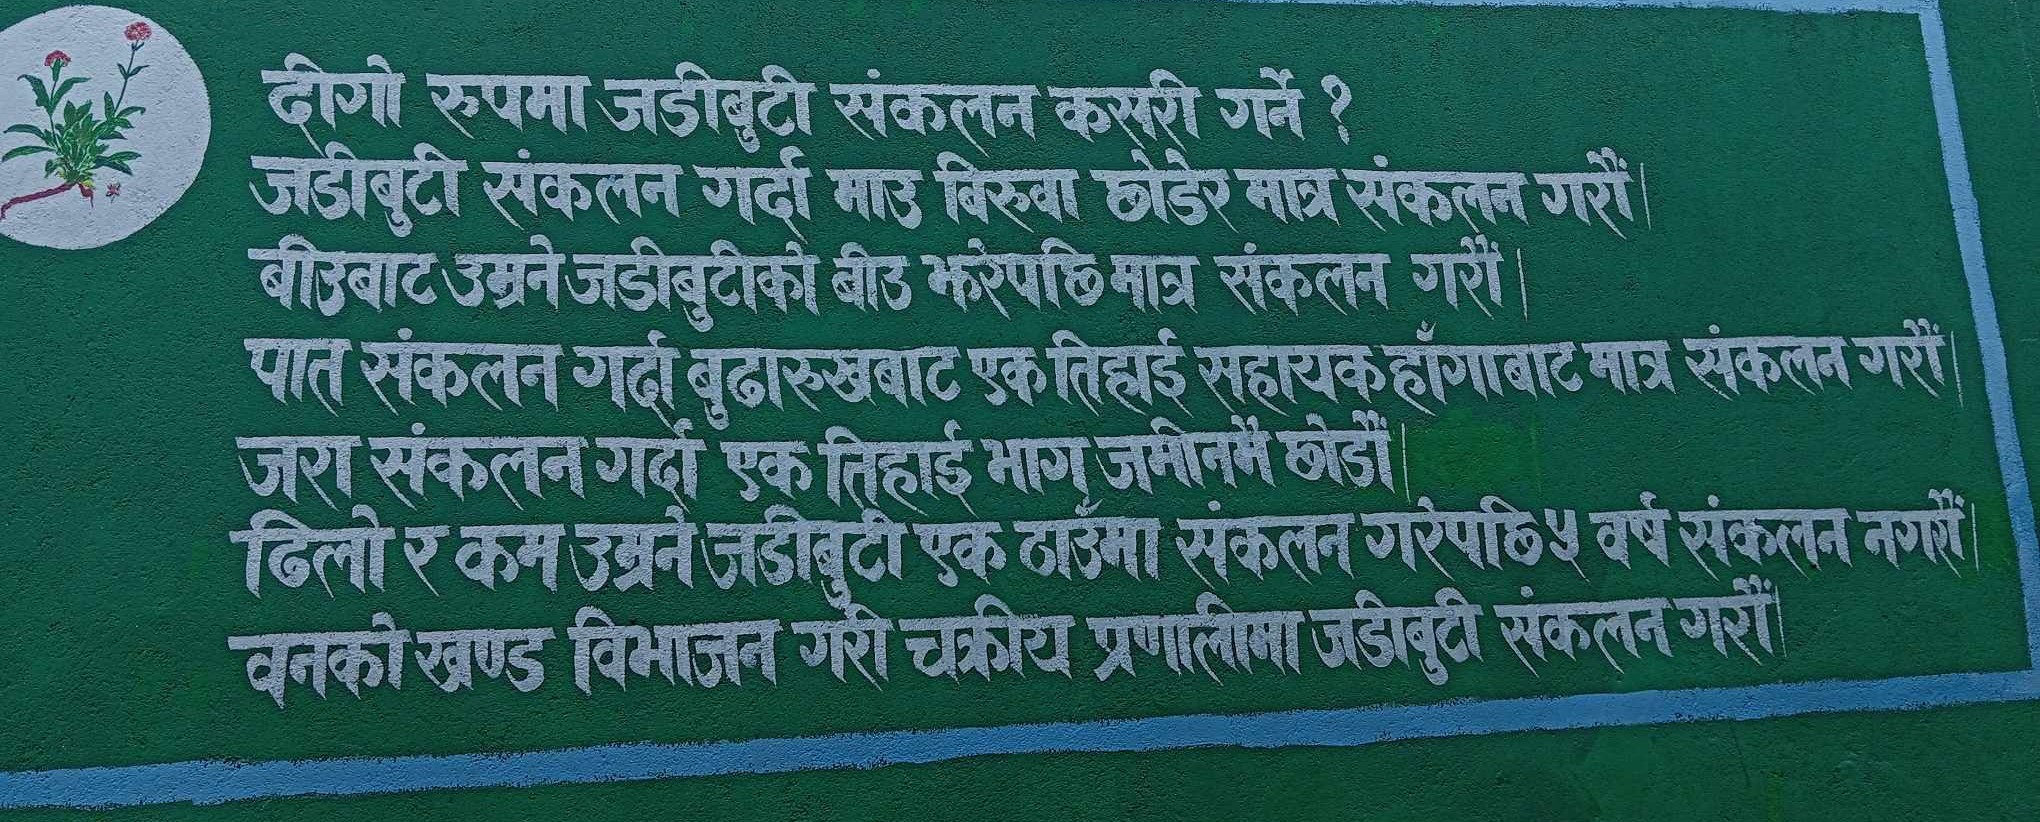 दीगो रुपमा जडीबुटी संकलन कसरी गर्ने ?
जडीबुटी संकलन गर्दा माउ बिरुवा छोडेर मात्र संकलन गरौं।
बीउबाट उम्रने जडीबुटीको बीउ झरेपछि मात्र संकलन गरौं।
पात संकलन गर्दा बुढारुखबाट एक तिहाई सहायक हाँगाबाट मात्र संकलन गरौं।
जरा संकलन गर्दा एक तिहाई भाग जमीनमै छोडौं।
ढिलो र कम उम्रने जडीबुटी एक ठाउँमा संकलन गरेपछि ५ वर्ष संकलन नगरौं।
वनको खण्ड विभाजन गरी चक्रीय प्रणालीमा जडीबुटी संकलन गरौं।